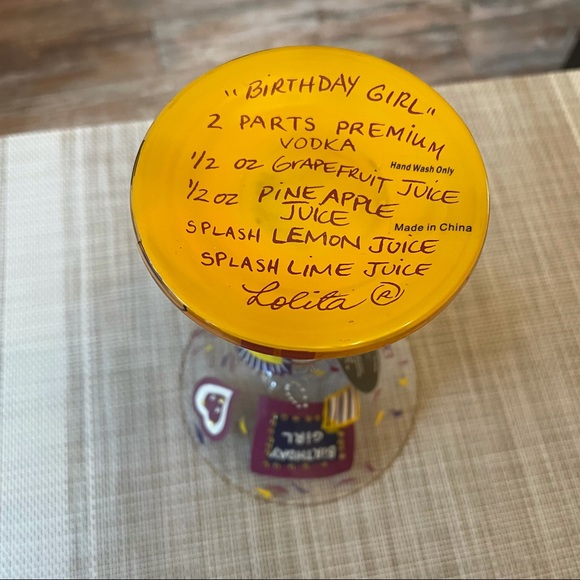 "BIRTHDAY GIRL"
2 PARTS PREMIUM
VODKA
1/2 OZ GRAPEFRUIT JUICE
Hand Wash Only
1/2 OZ PINEAPPLE
JUICE
Made in China
SPLASH LEMON JUICE
SPLASH LIME JUICE
Lolita ®
BIRTHDAY
GIRL